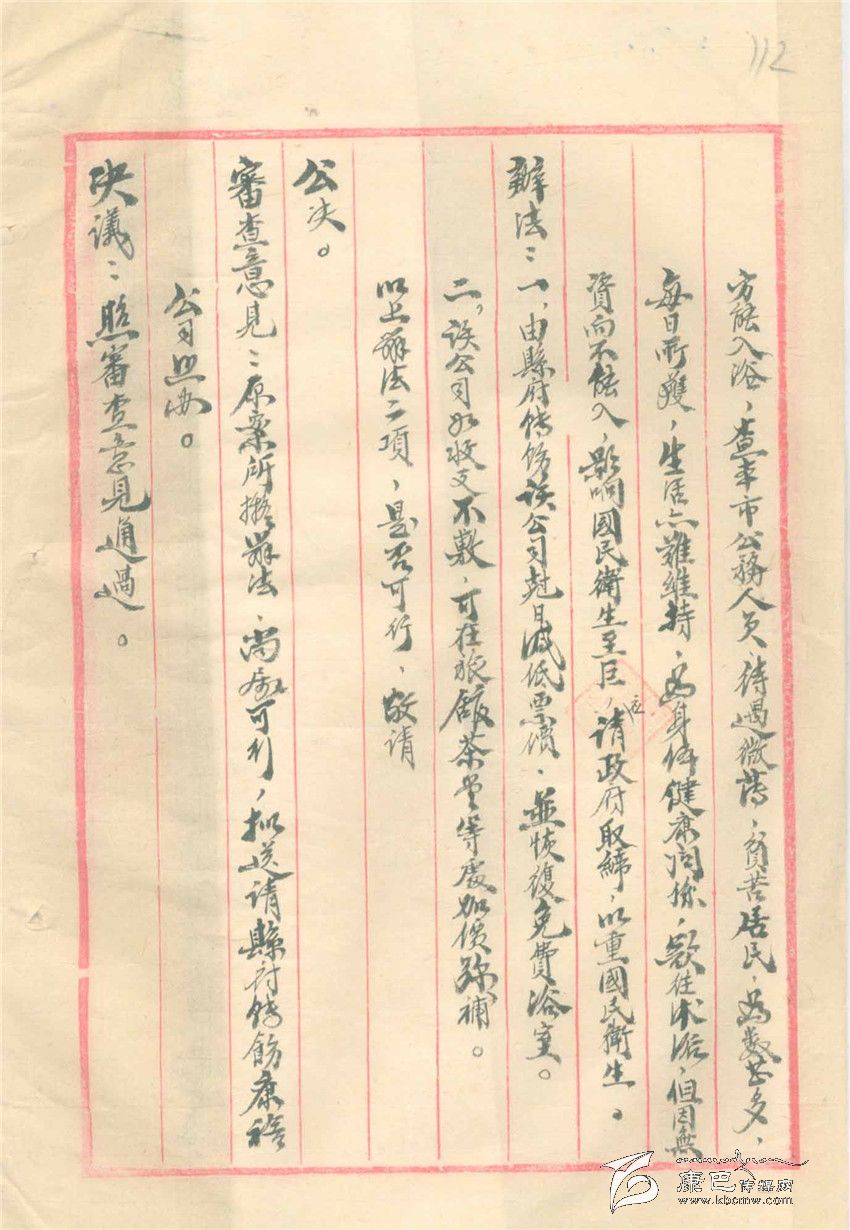 112
方能入浴，查本市公務人員，待遇微薄，貧苦居民，為數甚多，
每日所獲，生活亦難維持，為身体健康関係，欲往沐浴，但因無
資而不能入，影响國民衛生至巨，應請政府取締，以重國民衛生。
辦法：一、由縣府转飭該公司尅日減低票價，並恢復免費浴室。
二，該公司如收支不敷，可在旅館茶堂等處加價弥補。
以上辦法二項，是否可行，敬請
公决。
審查意見：原案所擬辦法，尚属可行，拟送請縣府转飭康裕
公司照办。
决議：照審查意見通過。
康巴传媒网
www.kbcmw.com